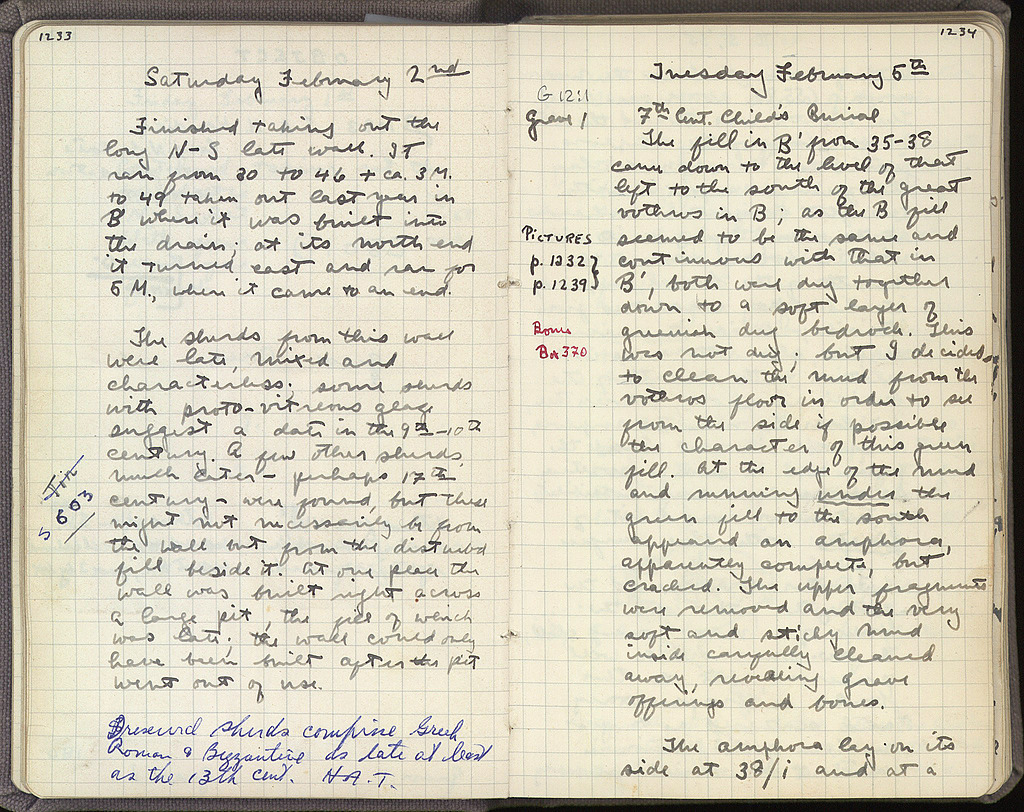 1233
Saturday February 2nd
Finished taking out the
long N-S late wall. It
ran from 30 to 46 + ca. 3 M.
to 49 taken out last year in
B where it was built into
the drain; at its north end
it turned east and ran for
6 M., where it came to an end.
The sherds from this wall
were late, mixed and
characterless; some sherds
with proto-vitreous glaze
suggest a date in the 9th-10th
century. A few other sherds,
much later - perhaps 17th
century - were found, but these
might not necessarily be from
the wall but from the disturbed
fill beside it. At one place the
wall was built right across
a large pit, the fill of which
was late; the wall could only
have been built after the pit
went out of use.
Tin
603
Preserved sherds comprise Greek
Roman & Byzantine as late at least
as the 13th cent. H.A.T.
1234
Tuesday February 5th
G 12:1
Grave 1
7th Cent. Child's Burial
The fill in B' from 35-38
came down to the level of that
left to the south of the great
vothros in B; as the B fill
seemed to be the same and
continuous with that in
B', both were dug together
down to a soft layer of
greenish dug bedrock. This
was not dug; but I decided
to clean the mud from the
vothros floor in order to see
from the side if possible
the character of this green
fill. At the edge of the mud
and running under the
green fill to the south
appeared an amphora,
apparently complete, but
cracked. The upper fragments
were removed and the very
soft and sticky mud
inside carefully cleaned
away, revealing grave
offerings and bones.
PICTURES
p. 1232
p. 1239
Bones
Box 370
The amphora lay on its
side at 38/i and at a